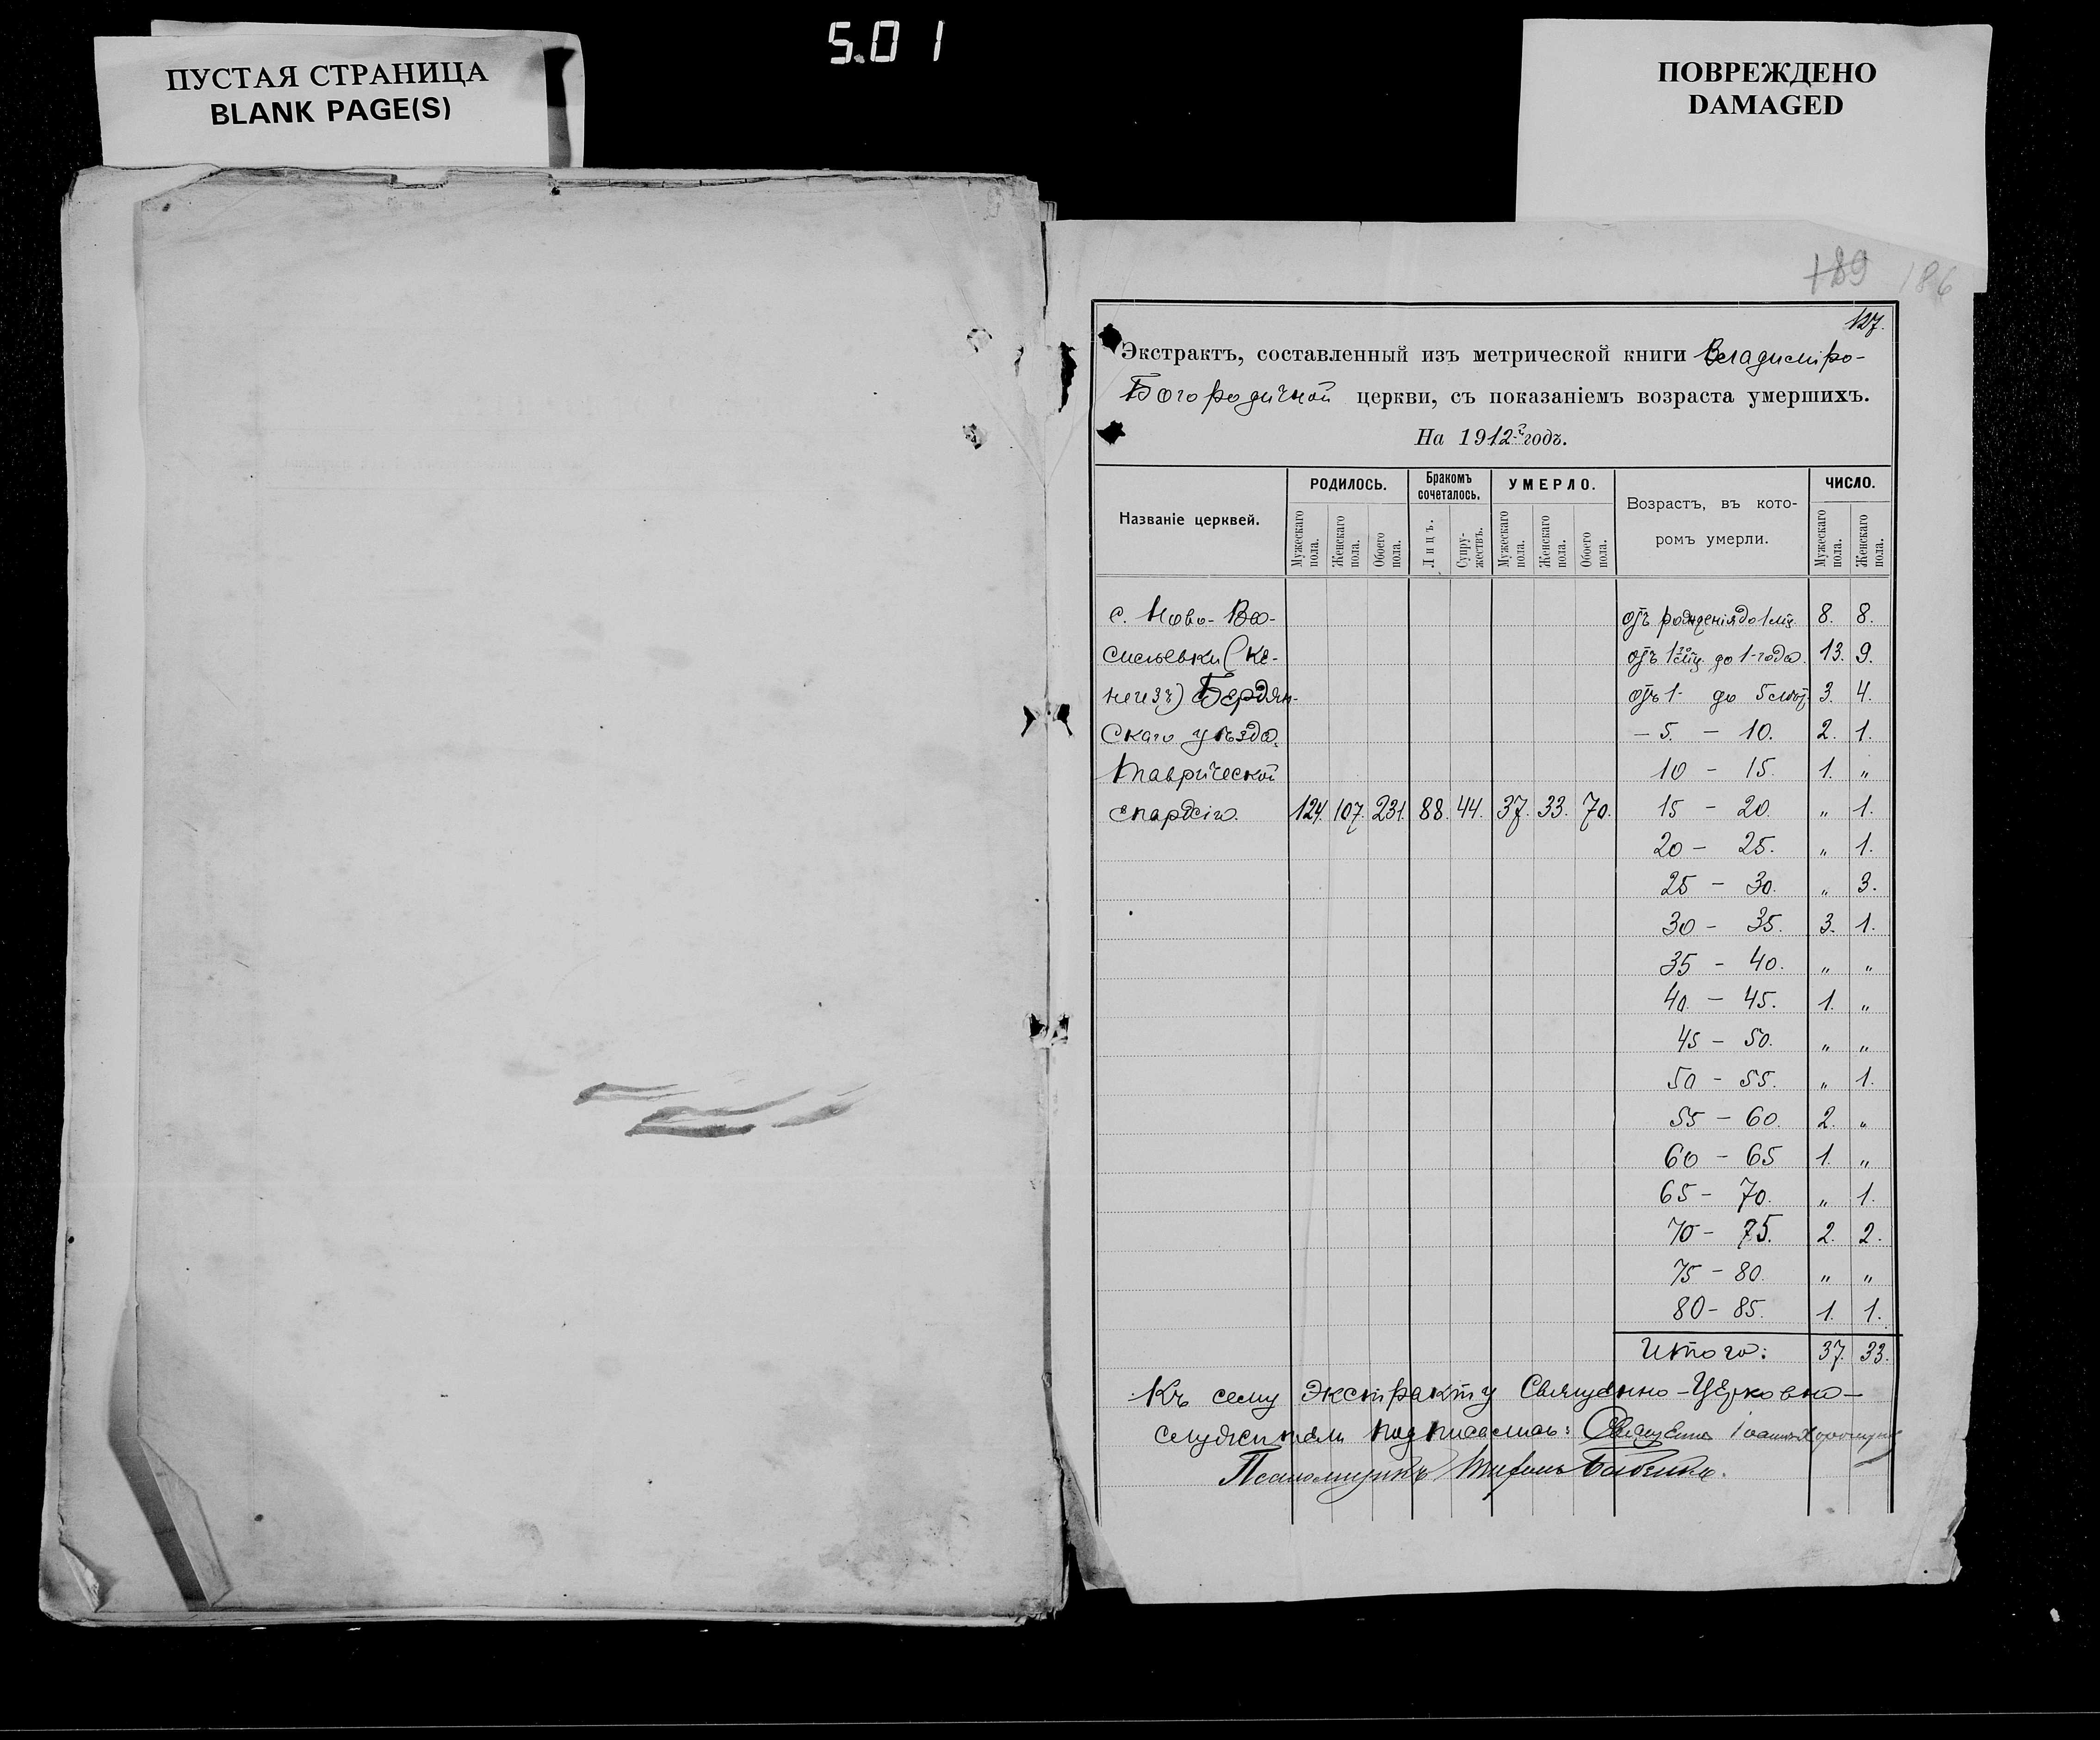 5.01
ПУСТАЯ СТРАНИЦА
BLANK PAGE(S)
ПОВРЕЖДЕНО
DAMAGED
189 186
127.
Экстрактъ, составленный изъ метрической книги Владиміро-
Богородичной церкви, съ показаніемъ возраста умершихъ.
На 1912-й годъ.
Названіе церквей. РОДИЛОСЬ. Бракомъ сочеталось. УМЕРЛО. Возрастъ, въ кото- ЧИСЛО.
ромъ умерли.
Мужескаго пола. Женскаго пола. Обоего пола. Лицъ. Супру-жествъ. Мужескаго пола. Женскаго пола. Обоего пола. Мужескаго пола. Женскаго пола.
с. Ново-Ва- отъ рожденія до 1 мц. 8. 8.
сильевки (Ке- отъ 1го мц. до 1-года. 13. 9.
негезъ) Бердян- отъ 1- до 5 лѣт. 3. 4.
скаго уѣзда, - 5. - 10. 2. 1.
Таврической 10 - 15. 1. "
епархіи. 124. 107. 231. 88. 44. 37. 33. 70. 15 - 20. " 1.
20 - 25. " 1.
25 - 30. " 3.
30 - 35. 3. 1.
35 - 40. " "
40. - 45. 1. "
45 - 50. " "
50 - 55. " 1.
55 - 60. 2. "
60 - 65 1. "
65 - 70. " 1.
70 - 75. 2. 2.
75 - 80. " "
80 - 85. 1. 1.
Итого: 37. 33.
Къ сему экстракту Священно-Церковно-
служители подписались: Священникъ Іоаннъ
Псаломщикъ Тихонъ Бабенко.